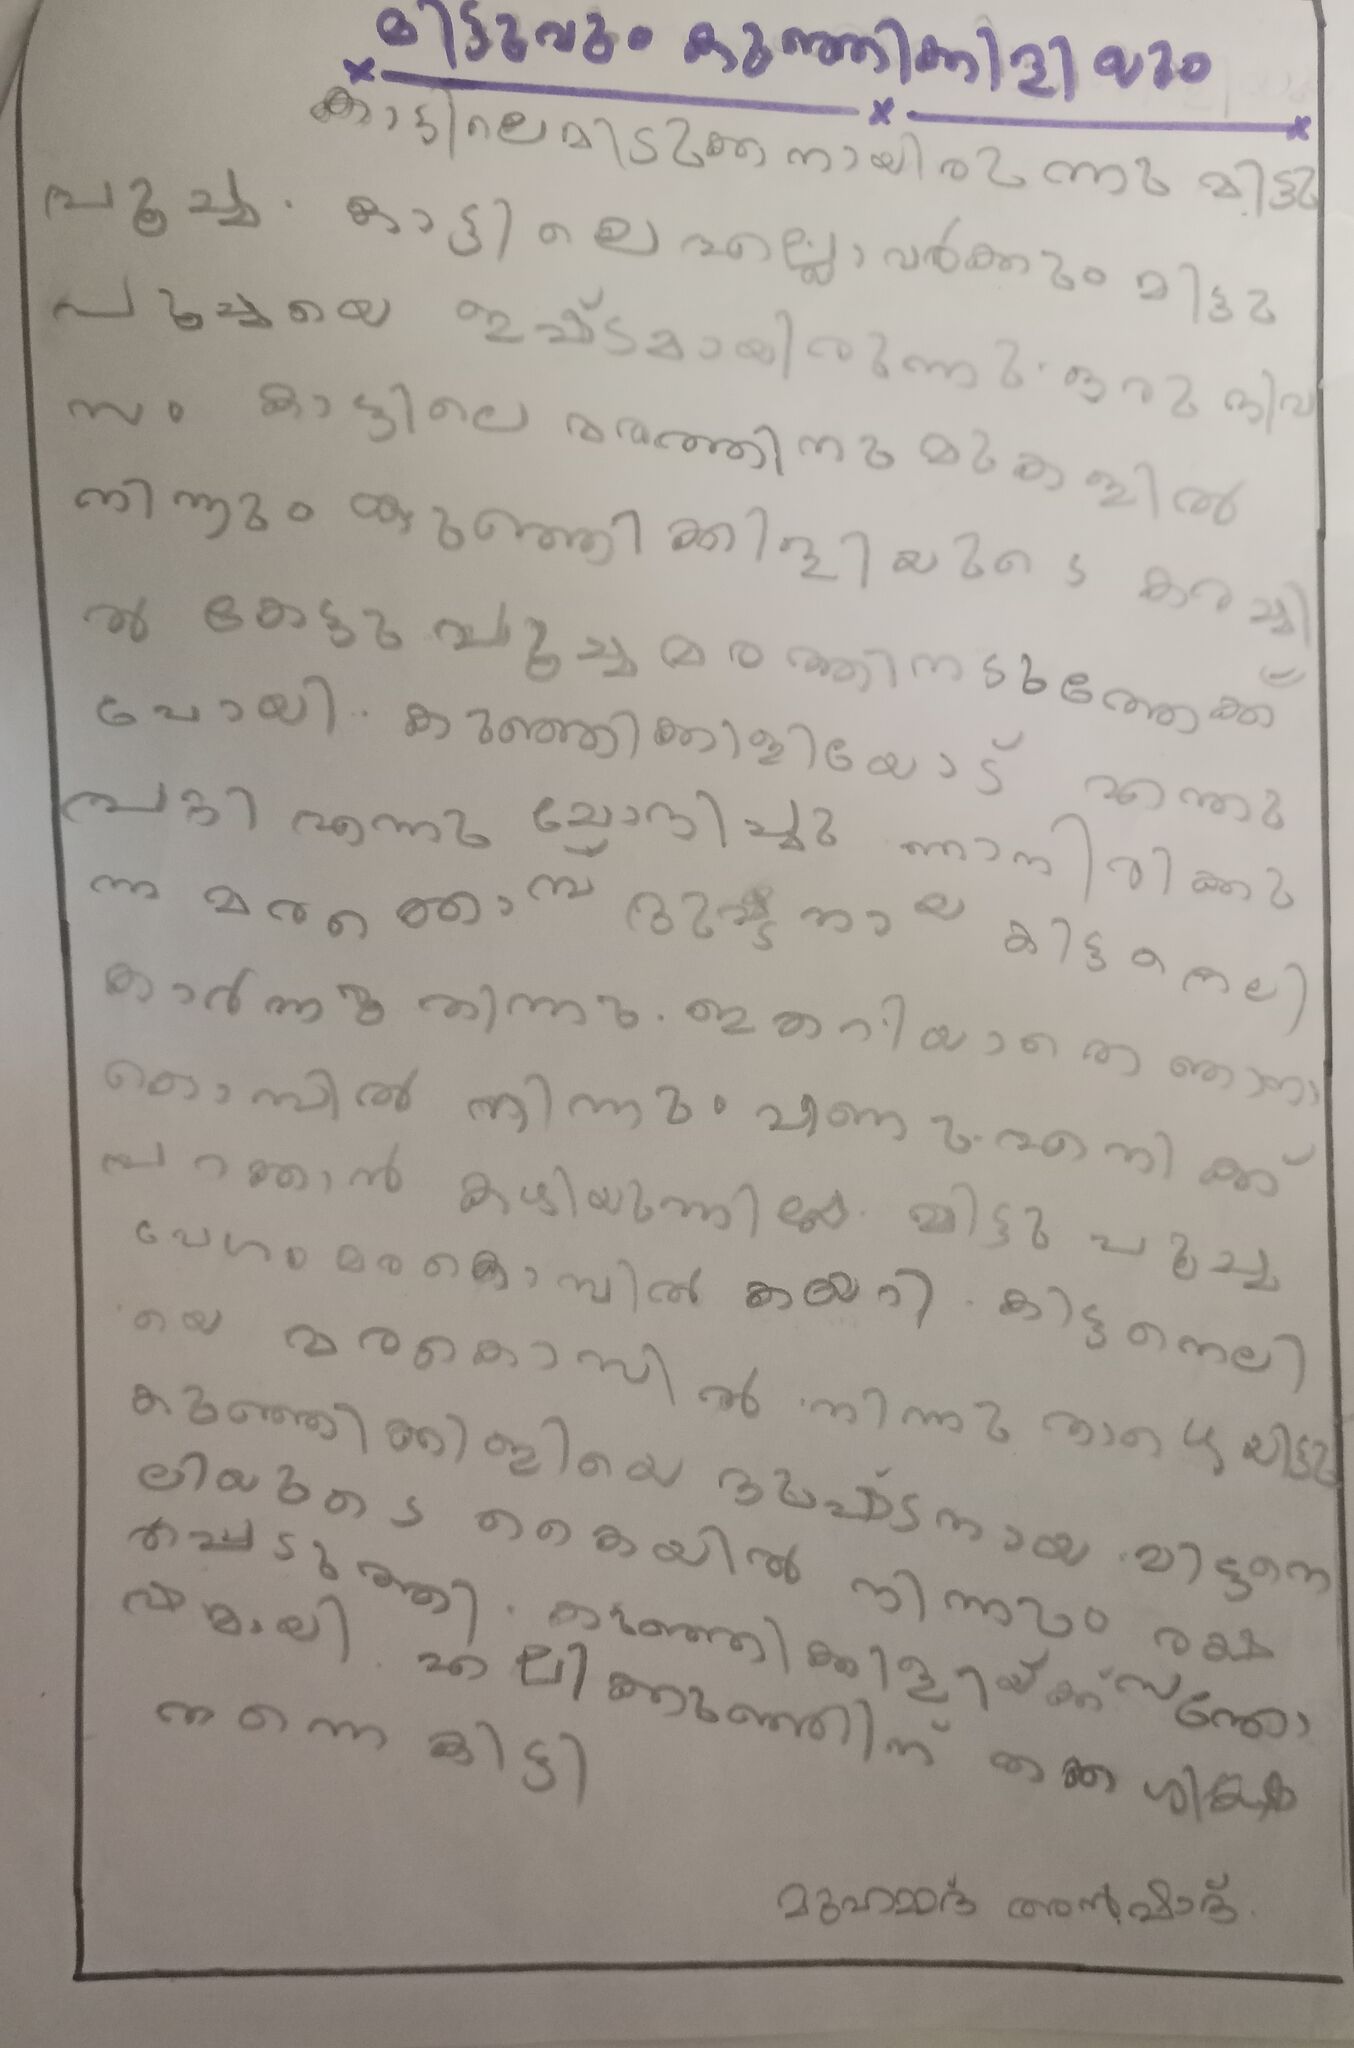 മിട്ടുവും കുഞ്ഞിക്കിളിയും
കാട്ടിലെ മിടുക്കനായിരുന്നു മിട്ടു
പൂച്ച. കാട്ടിലെ എല്ലാവർക്കും മിട്ടു
പൂച്ചയെ ഇഷ്ടമായിരുന്നു. ഒരു ദിവ
സം കാട്ടിലെ മരത്തിനു മുകളിൽ
നിന്നും കുഞ്ഞിക്കിളിയുടെ കരച്ചി
ൽ കേട്ടു പൂച്ച മരത്തിനടുത്തേക്ക്
പോയി. കുഞ്ഞിക്കിളിയോട് എന്തു
പറ്റി എന്നു ചോദിച്ചു ഞാനിരിക്കു
ന്ന മരക്കൊമ്പ് ദുഷ്ടനായ കിട്ടനെലി
കാർന്നു തിന്നു. ഇതറിയാതെ ഞാനാ
കൊമ്പിൽ നിന്നും വീണു. എനിക്ക്
പറക്കാൻ കഴിയുന്നില്ല. മിട്ടു പൂച്ച
വേഗം മരകൊമ്പിൽ കയറി. കിട്ടനെലി
യെ മരകൊമ്പിൽ നിന്നു താഴെയിട്ടു
കുഞ്ഞിക്കിളിയെ ദുഷ്ടനായ കിട്ടനെ
ലിയുടെ കൈയിൽ നിന്നും രക്ഷ
പ്പെടുത്തി. കുഞ്ഞിക്കിളിയ്ക്ക് സന്തോ
ഷമായി. എലിക്കുഞ്ഞിന് തക്ക ശിക്ഷ
തന്നെ കിട്ടി
മുഹമ്മദ് അൻഷാദ്.